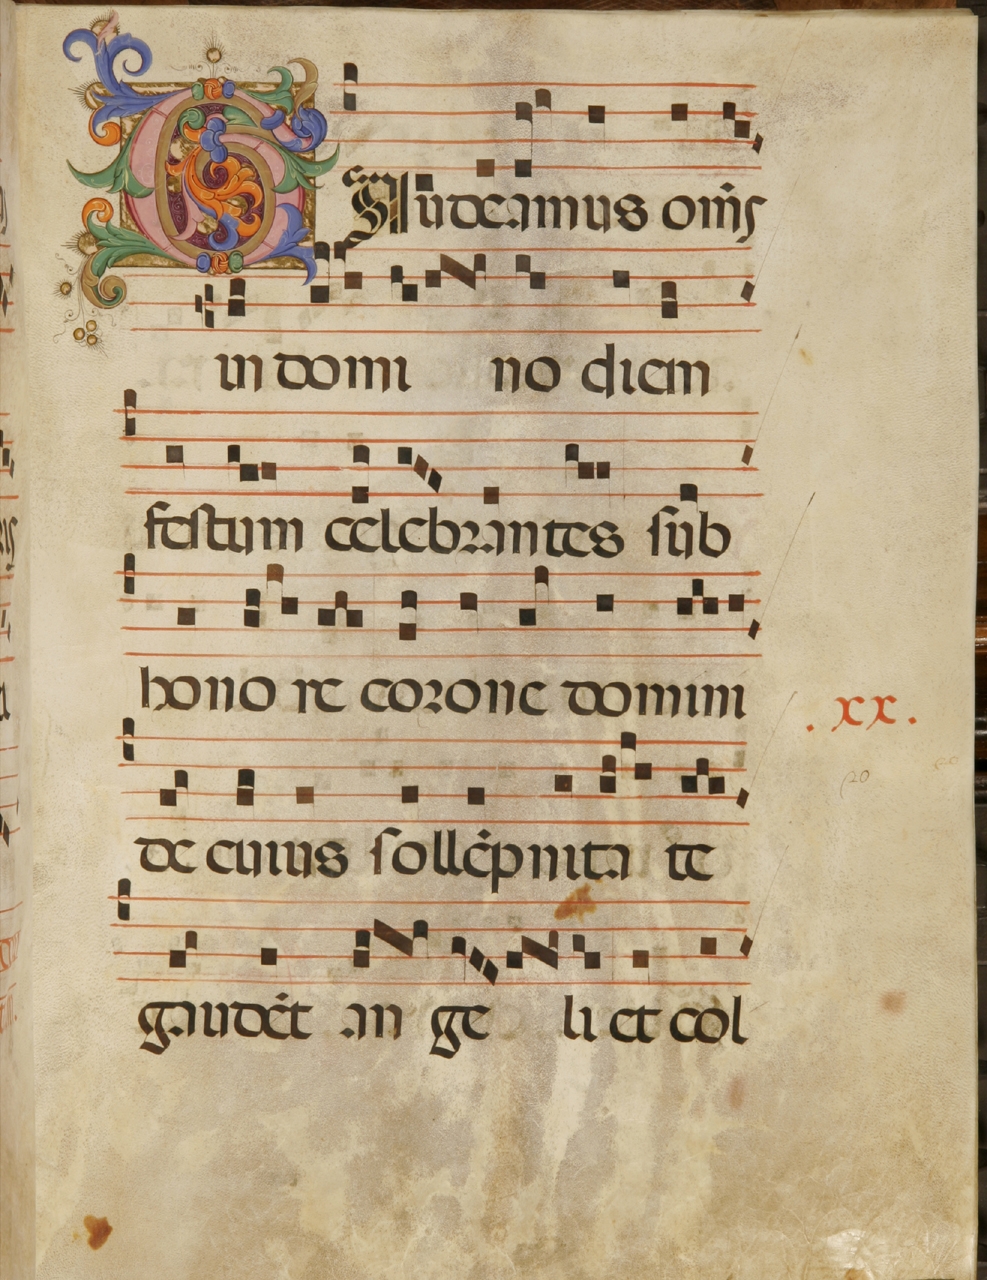 GAudeamus om̄s
in domi no diem
festum celebrantes sub
hono re corone domini
.xx.
20
de cuius sollēpnita te
gaudēt an ge li et col